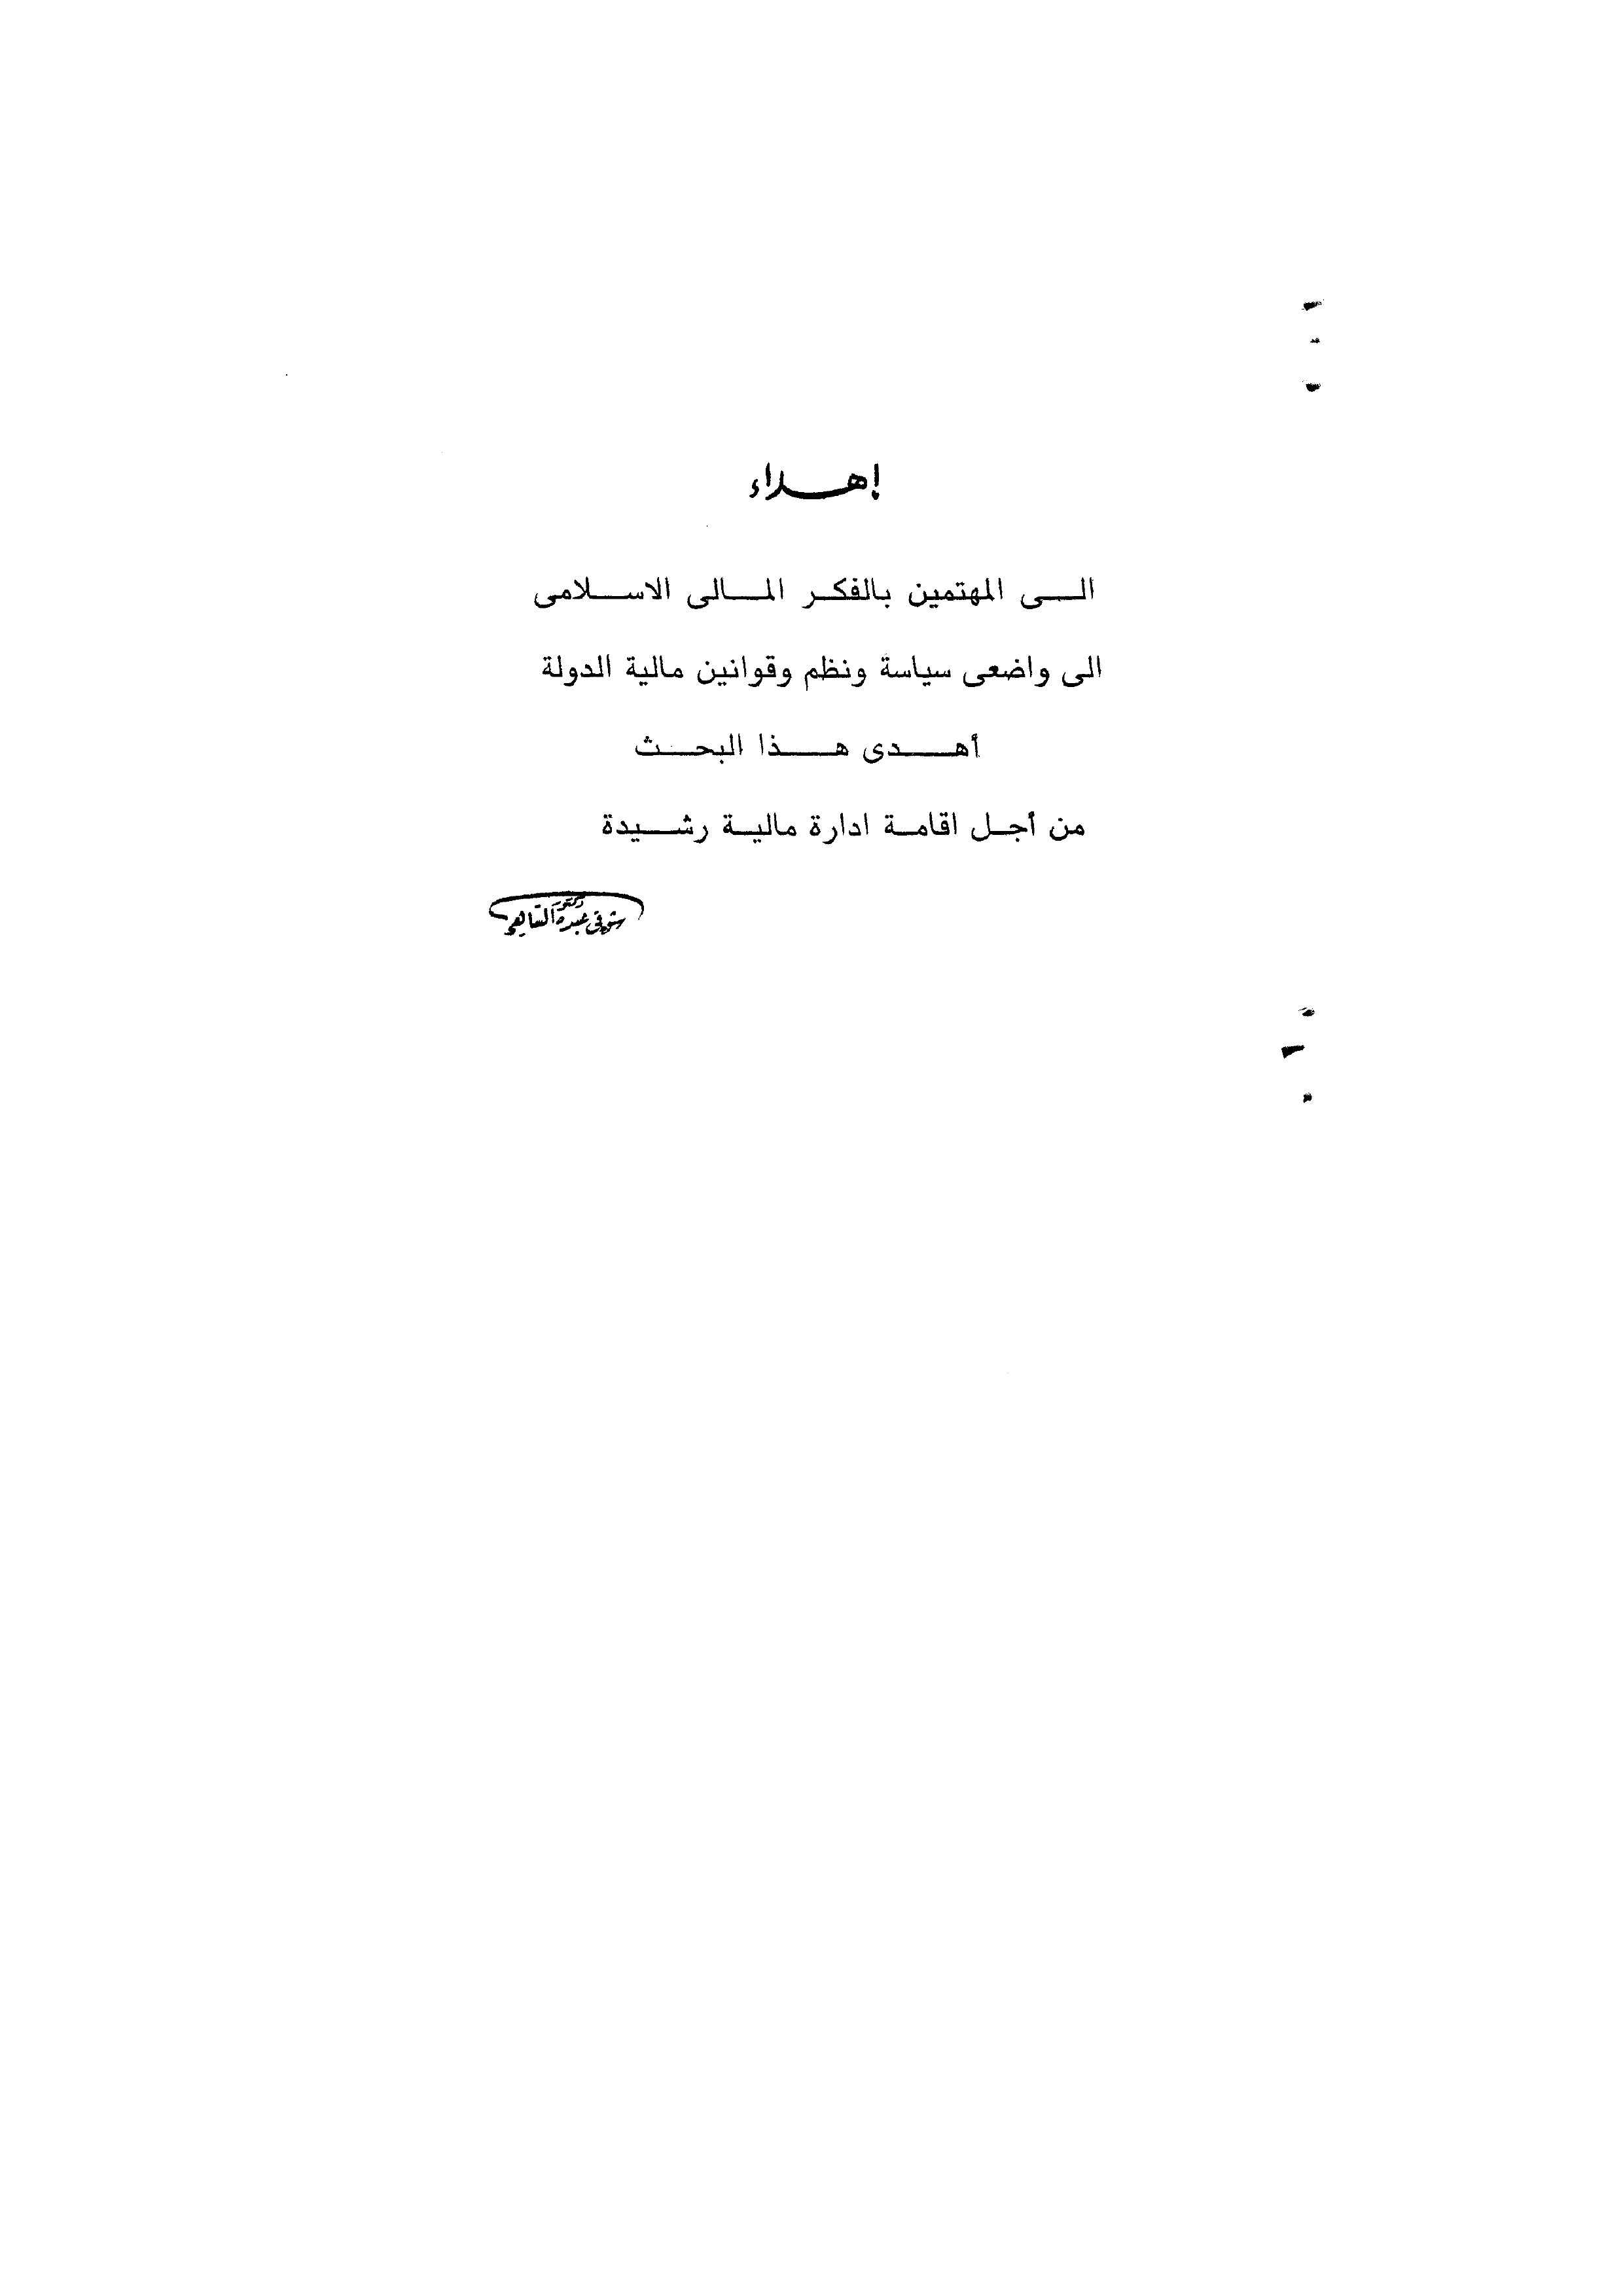 إهداء
الى المهتمين بالفكر المالى الاسلامى
الى واضعى سياسة ونظم وقوانين مالية الدولة
أهدى هذا البحث
من أجل اقامة ادارة مالية رشيدة
دكتور
شوقى عبده الساهى